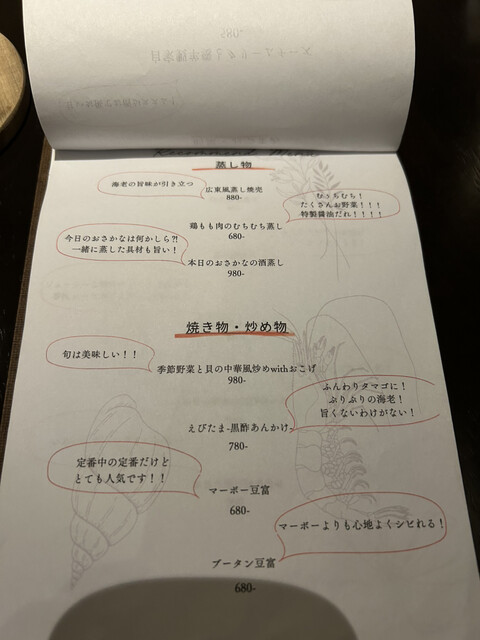 蒸し物
海老の旨味が引き立つ
広東風蒸し焼売
880-
むっちむち！
たくさんお野菜！！！
特製醤油だれ！！！！
鶏もも肉のむちむち蒸し
680-
今日のおさかなは何かしら?!
一緒に蒸した具材も旨い！
本日のおさかなの酒蒸し
980-
焼き物・炒め物
旬は美味しい！！
季節野菜と貝の中華風炒めwithおこげ
980-
ふんわりタマゴに！
ぷりぷりの海老！
旨くないわけがない！
えびたま-黒酢あんかけ-
780-
定番中の定番だけど
とても人気です！！
マーボー豆富
680-
マーボーよりも心地よくシビれる！
ブータン豆富
680-